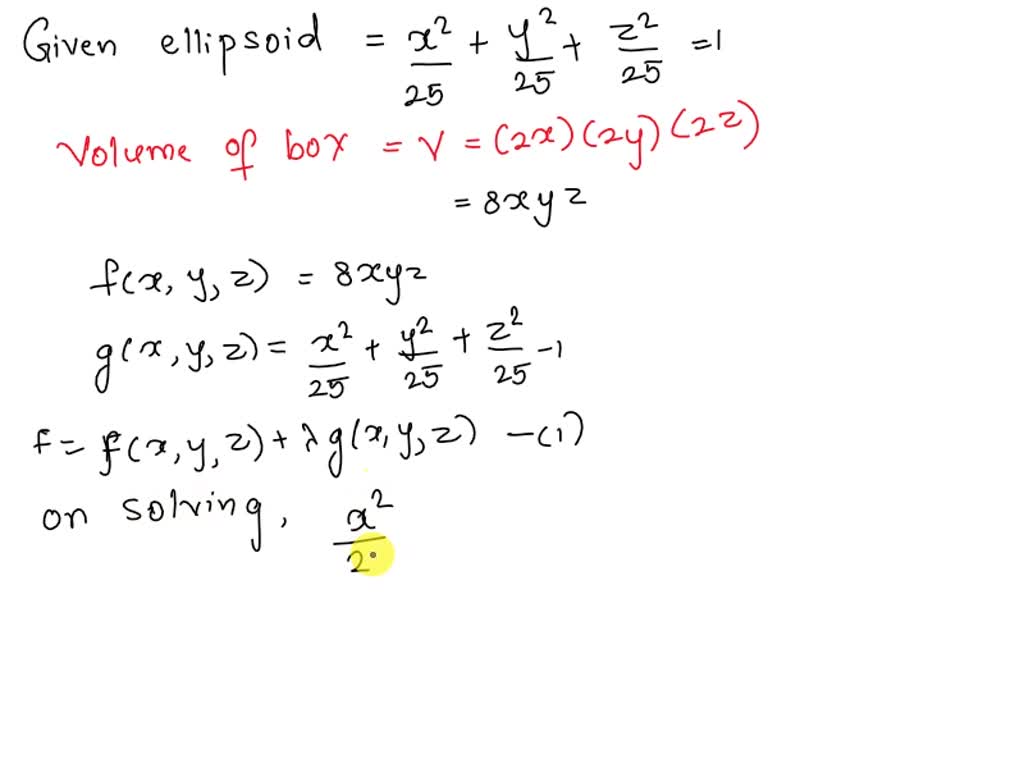 Given ellipsoid = x²/25 + y²/25 + z²/25 = 1
Volume of box = V = (2x)(2y)(2z)
= 8xyz
f(x, y, z) = 8xyz
g(x, y, z) = x²/25 + y²/25 + z²/25 - 1
F = f(x, y, z) + λg(x, y, z) -(1)
on solving, x²/2